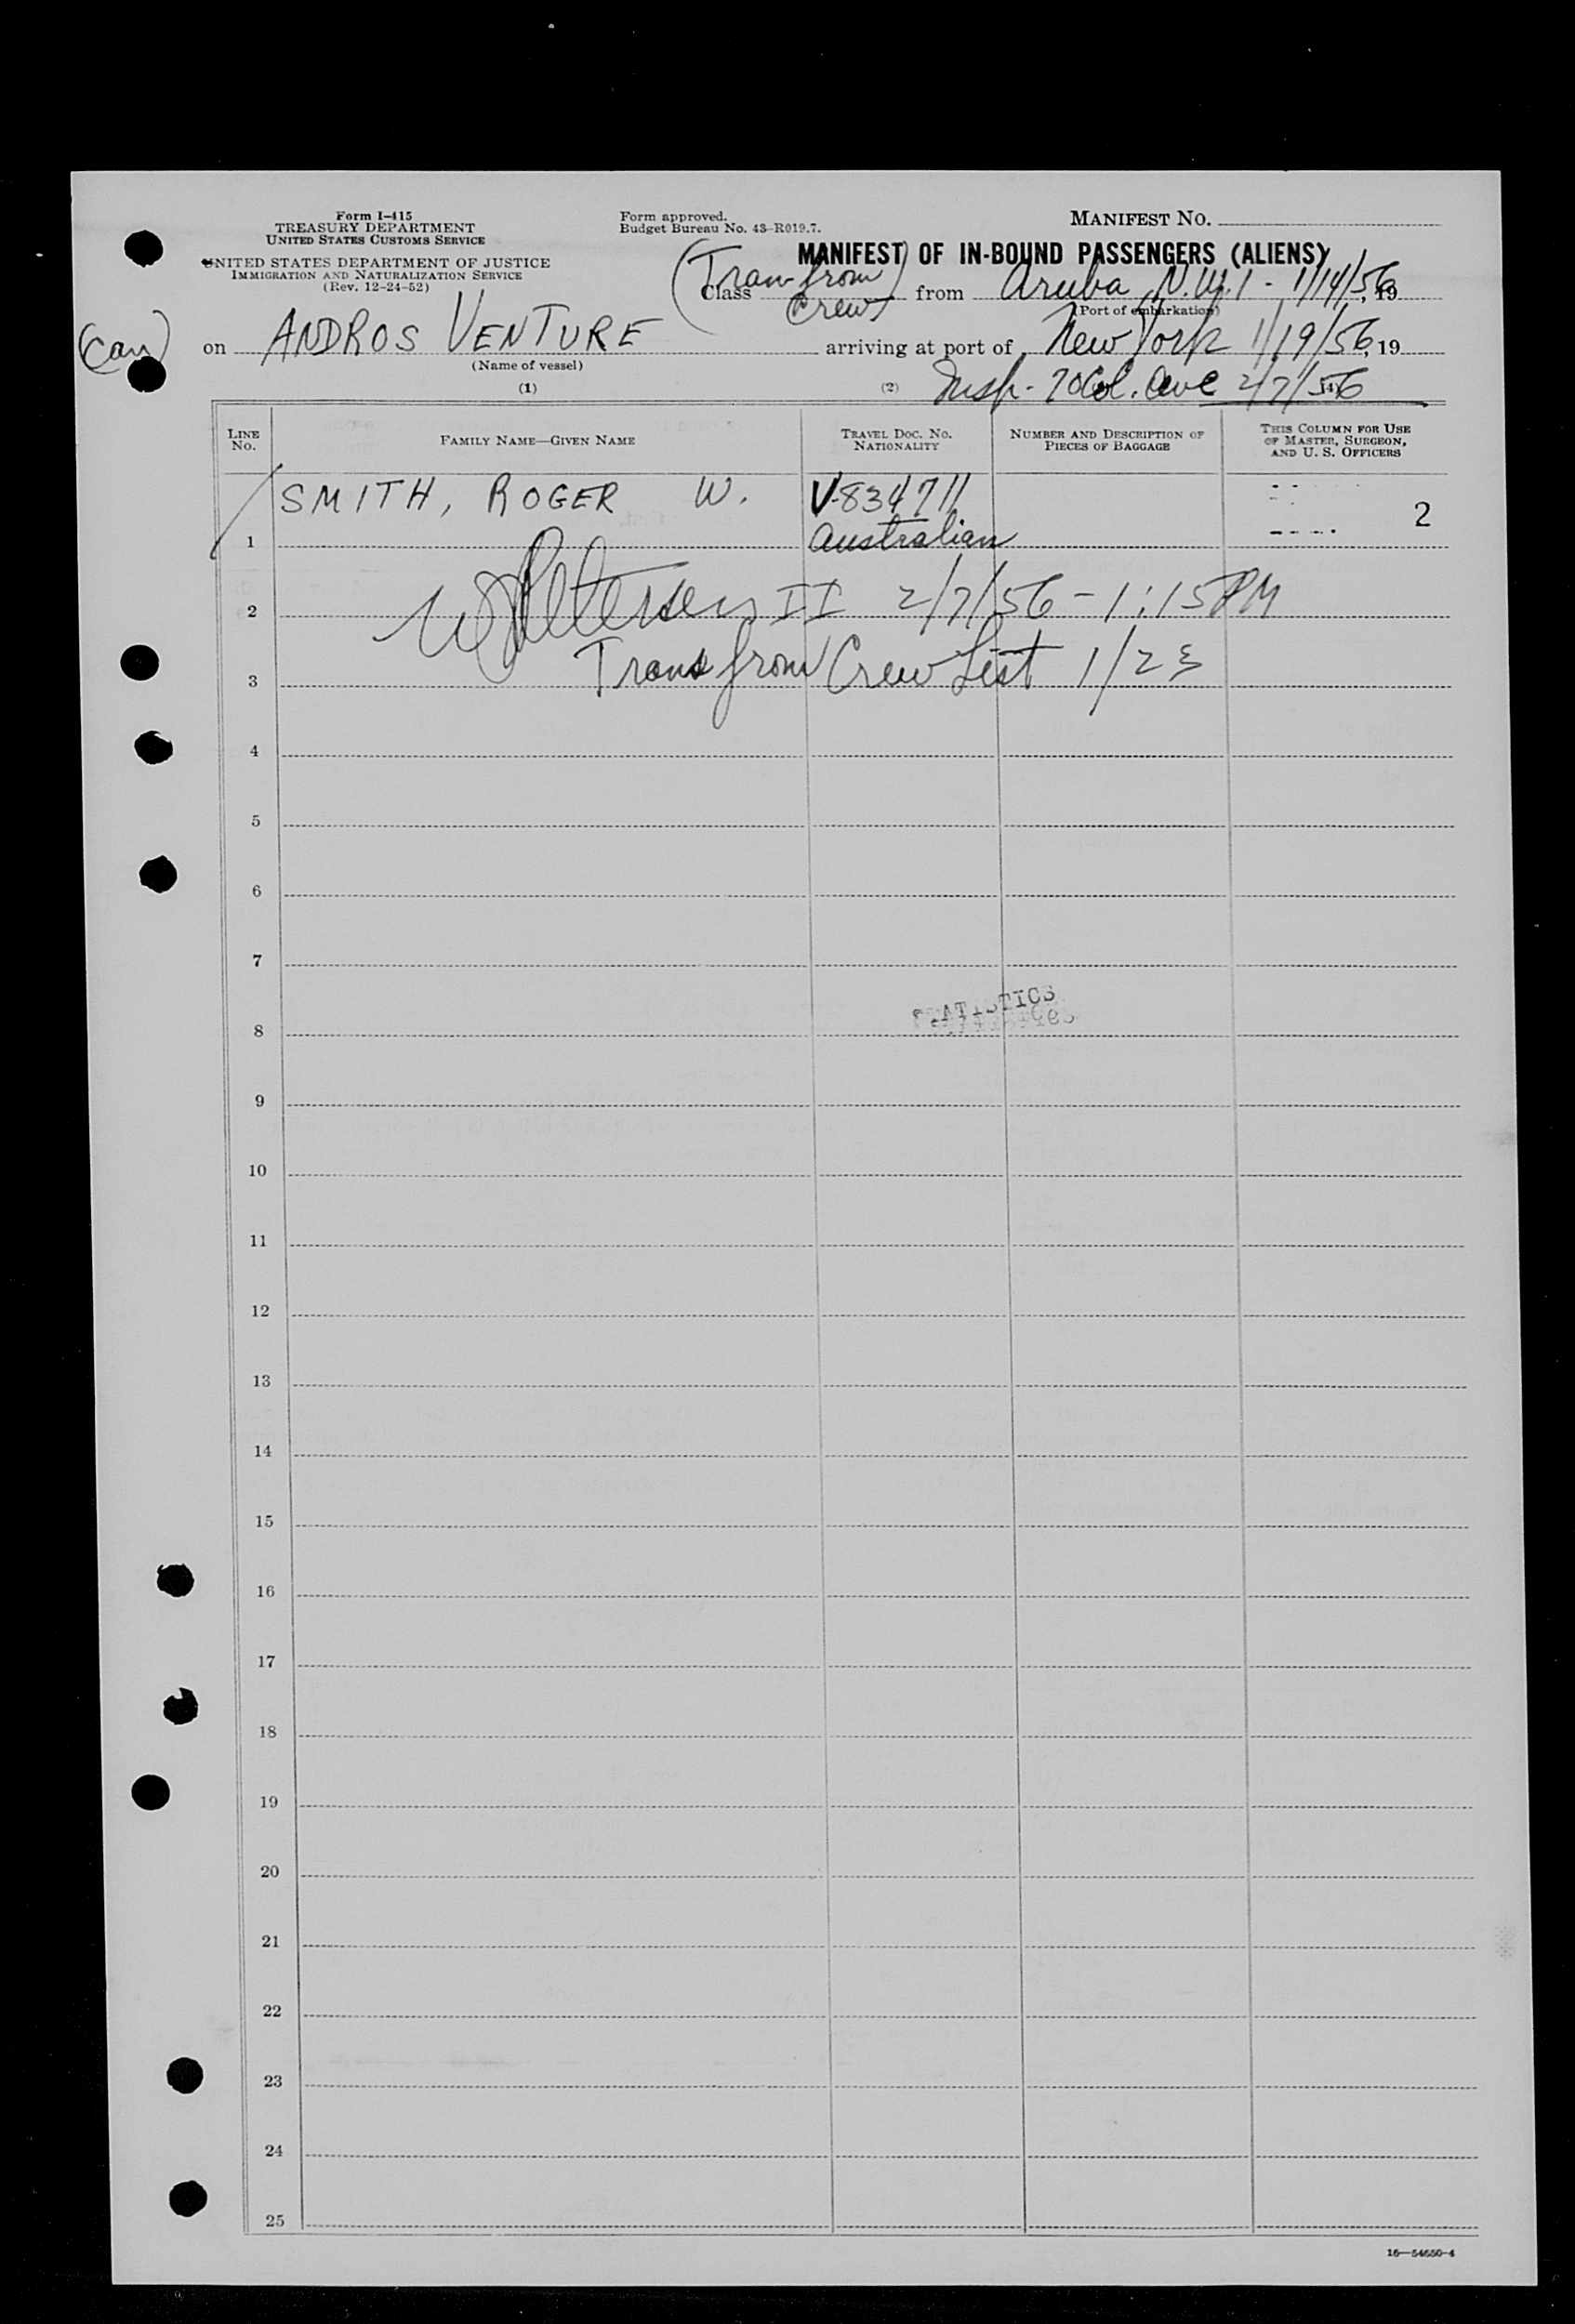 Form I-415
TREASURY DEPARTMENT
UNITED STATES CUSTOMS SERVICE
UNITED STATES DEPARTMENT OF JUSTICE
IMMIGRATION AND NATURALIZATION SERVICE
(Rev. 12-24-52)
Form approved.
Budget Bureau No. 43-R019.7.
MANIFEST NO.
MANIFEST OF IN-BOUND PASSENGERS (ALIENS)
Class (Tran from Crew) from Aruba, N.W.I - 1/14/56, 19
(Port of embarkation)
(Can) on ANDROS VENTURE arriving at port of New York 1/19/56, 19
(Name of vessel)
(1) (2) Insp - 70 Col. Ave 2/7/56
LINE NO.
FAMILY NAME—GIVEN NAME
TRAVEL DOC. NO. NATIONALITY
NUMBER AND DESCRIPTION OF PIECES OF BAGGAGE
THIS COLUMN FOR USE OF MASTER, SURGEON, AND U. S. OFFICERS
1 SMITH, ROGER W. V-834711 2
Australian
2 Petersen II 2/7/56 - 1:15 PM
3 Trans from Crew List 1/23
4
5
6
7
STATISTICS
8
9
10
11
12
13
14
15
16
17
18
19
20
21
22
23
24
25
16—54650-4